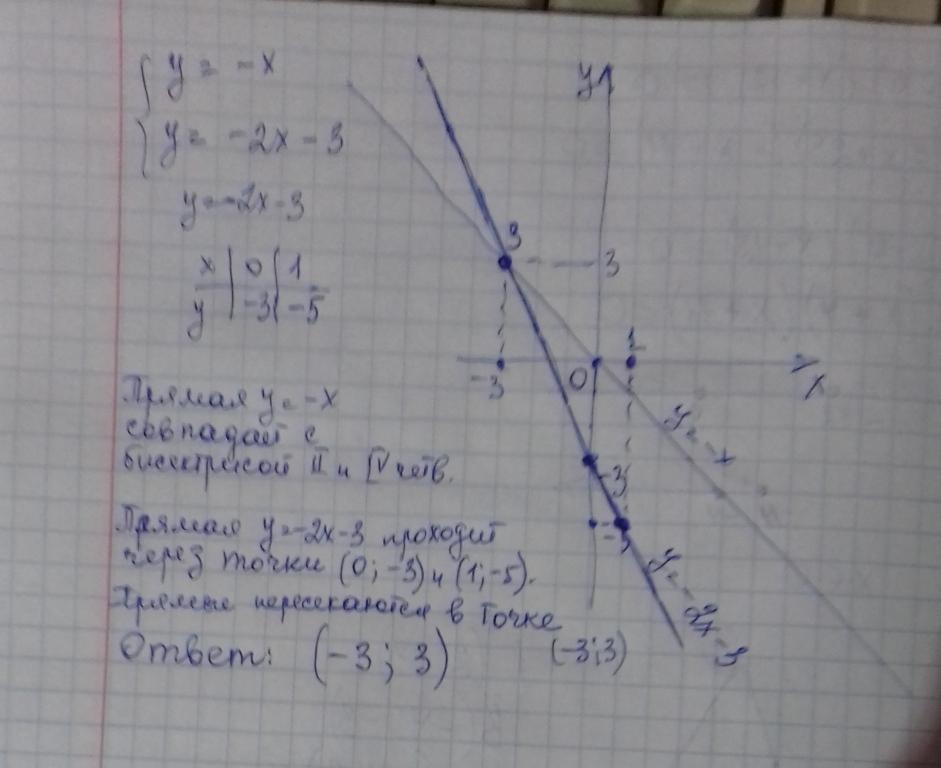 y = -x
y = -2x - 3
y = -2x - 3
x | 0 | 1
y | -3 | -5
Прямая y = -x
совпадает с
биссектрисой II и IV четв.
Прямая y=-2x-3 проходит
через точки (0; -3) и (1; -5).
Прямые пересекаются в точке
(-3; 3)
Ответ: (-3; 3)
y
3
3
1
-3
0
x
y = -x
-3
-5
y = -2x - 3